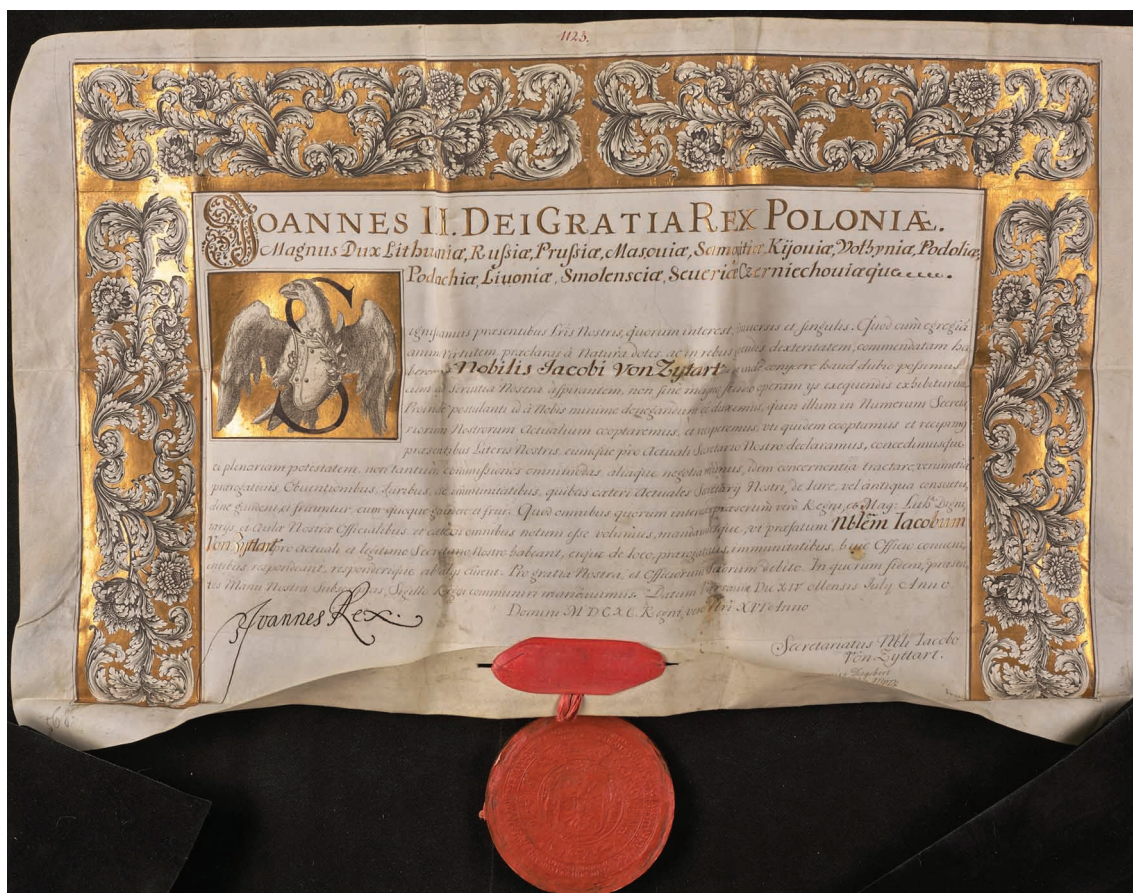 1123.
JOANNES II. DEI GRATIA REX POLONIÆ.
Magnus Dux Lithuaniæ, Russiæ, Prussiæ, Masouiæ, Samogitiæ Kijouiæ, Volhyniæ, Podoliæ,
Podlachiæ, Liuoniæ, Smolensciæ, Seueriæ Czerniechouiæque
S
ignificamus præsentibus Lris Nostris, quorum interest, vniuersis et singulis. Quod cum egregiā
animi virtutem, præclaras à Natura dotes, ac in rebus dexteritatem, commendatam ha
Nobilis Jacobi Von Zyttart haud dubie possimus
eum ad seruitia Nostra aspirantem, non sine operam ys exequendis exhibiturum
Proinde postulanti id à Nobis minime denegandum quin illum in Numerum Secreta
riorum Nostrorum Actualium cooptaremus, et reciperemus, vti quidem cooptamus et recipimus
præsentibus Literis Nostris, eumque pro Actuali Secretario Nostro declaramus, concedimusque
ei plenariam potestatem, non tantum commissiones omnimodas, aliaque negotia munus idem concernentia tractare, verum etiā
prærogatiuis, Obuentionibus, ac immunitatibus, quibus cæteri Actuales Secretarij Nostri, de Iure, vel antiqua consuetu
dine gaudent et fruuntur, eum quoque gaudere et frui. Quod omnibus quorum interest, præsertim vero Regni, et Mag: Dign
tarijs, et Aulæ Nostræ Officialibus et omnibus notum esse volumus, mandamusque, vt præfatum Nblem Iacobum
Von Zyttart pro actuali et legitimo Secretario Nostro habeant, eique de loco, prærogatiuis, immunitatibus, huic Officio conueni
entibus respondeant, responderique ab alijs curent. Pro gratia Nostra, et Officiorum suorum debito. In quorum fidem, præsen
tes Manu Nostra Sigillo Regni communiri mandauimus. Datum Die XIV Mensis July Anno
Domini M DC XC. Regni, vero Nri XVI Anno
Joannes Rex.
Secretariatus Nbli Iacobo
Von Zyttart.